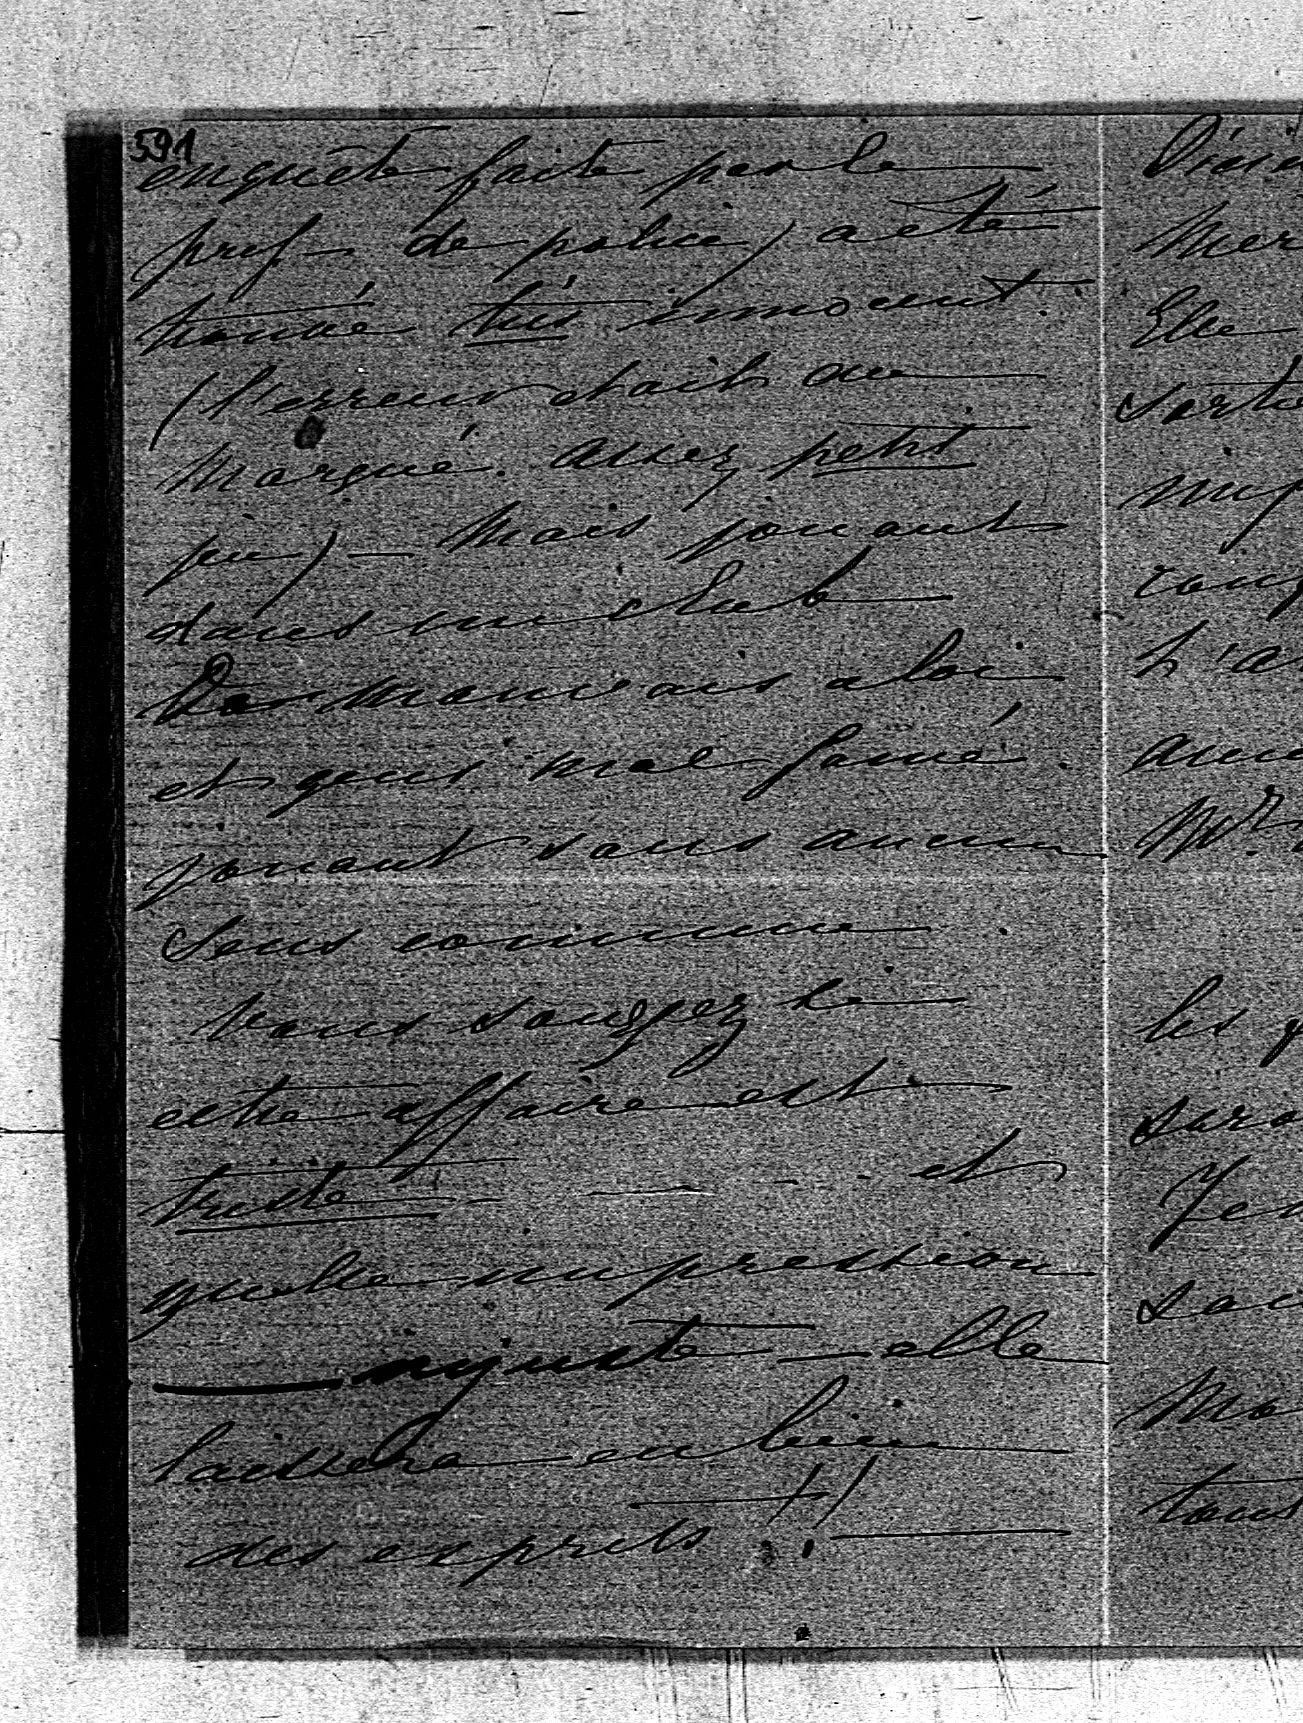 591
enquête faite par le
pref - de police) a été
trouvé très innocent.
(l'erreur était au
marqué. assez petit
jeu) - Mais jouant
dans un club
de mauvais aloi
et gens mal famé.
jouant sans aucun
sens commun.
Vous songez si
cette affaire est
triste - et
quelle impression
injuste - elle
laissera en bien
des esprits !!
Mer
Elle
sortie
L'a
Mr.
les
tous